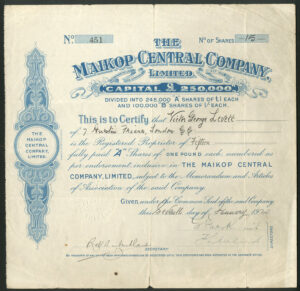 No. 451 No OF SHARES 15
THE
MAIKOP CENTRAL COMPANY,
LIMITED.
CAPITAL £250,000.
DIVIDED INTO 245,000 "A" SHARES OF £1 EACH
AND 100,000 "B" SHARES OF 1/- EACH.
This is to Certify that Victor George
of 7 Austin Friars, London E.C.
is the Registered Proprietor of Fifteen
fully paid "A" Shares of ONE POUND each numbered as
per endorsement inclusive in THE MAIKOP CENTRAL
COMPANY, LIMITED, subject to the Memorandum and Articles
of Association of the said Company.
Given under the Common Seal of the said Company
this day of
THE
MAIKOP
CENTRAL
COMPANY,
LIMITED.
DIRECTORS
SECRETARY